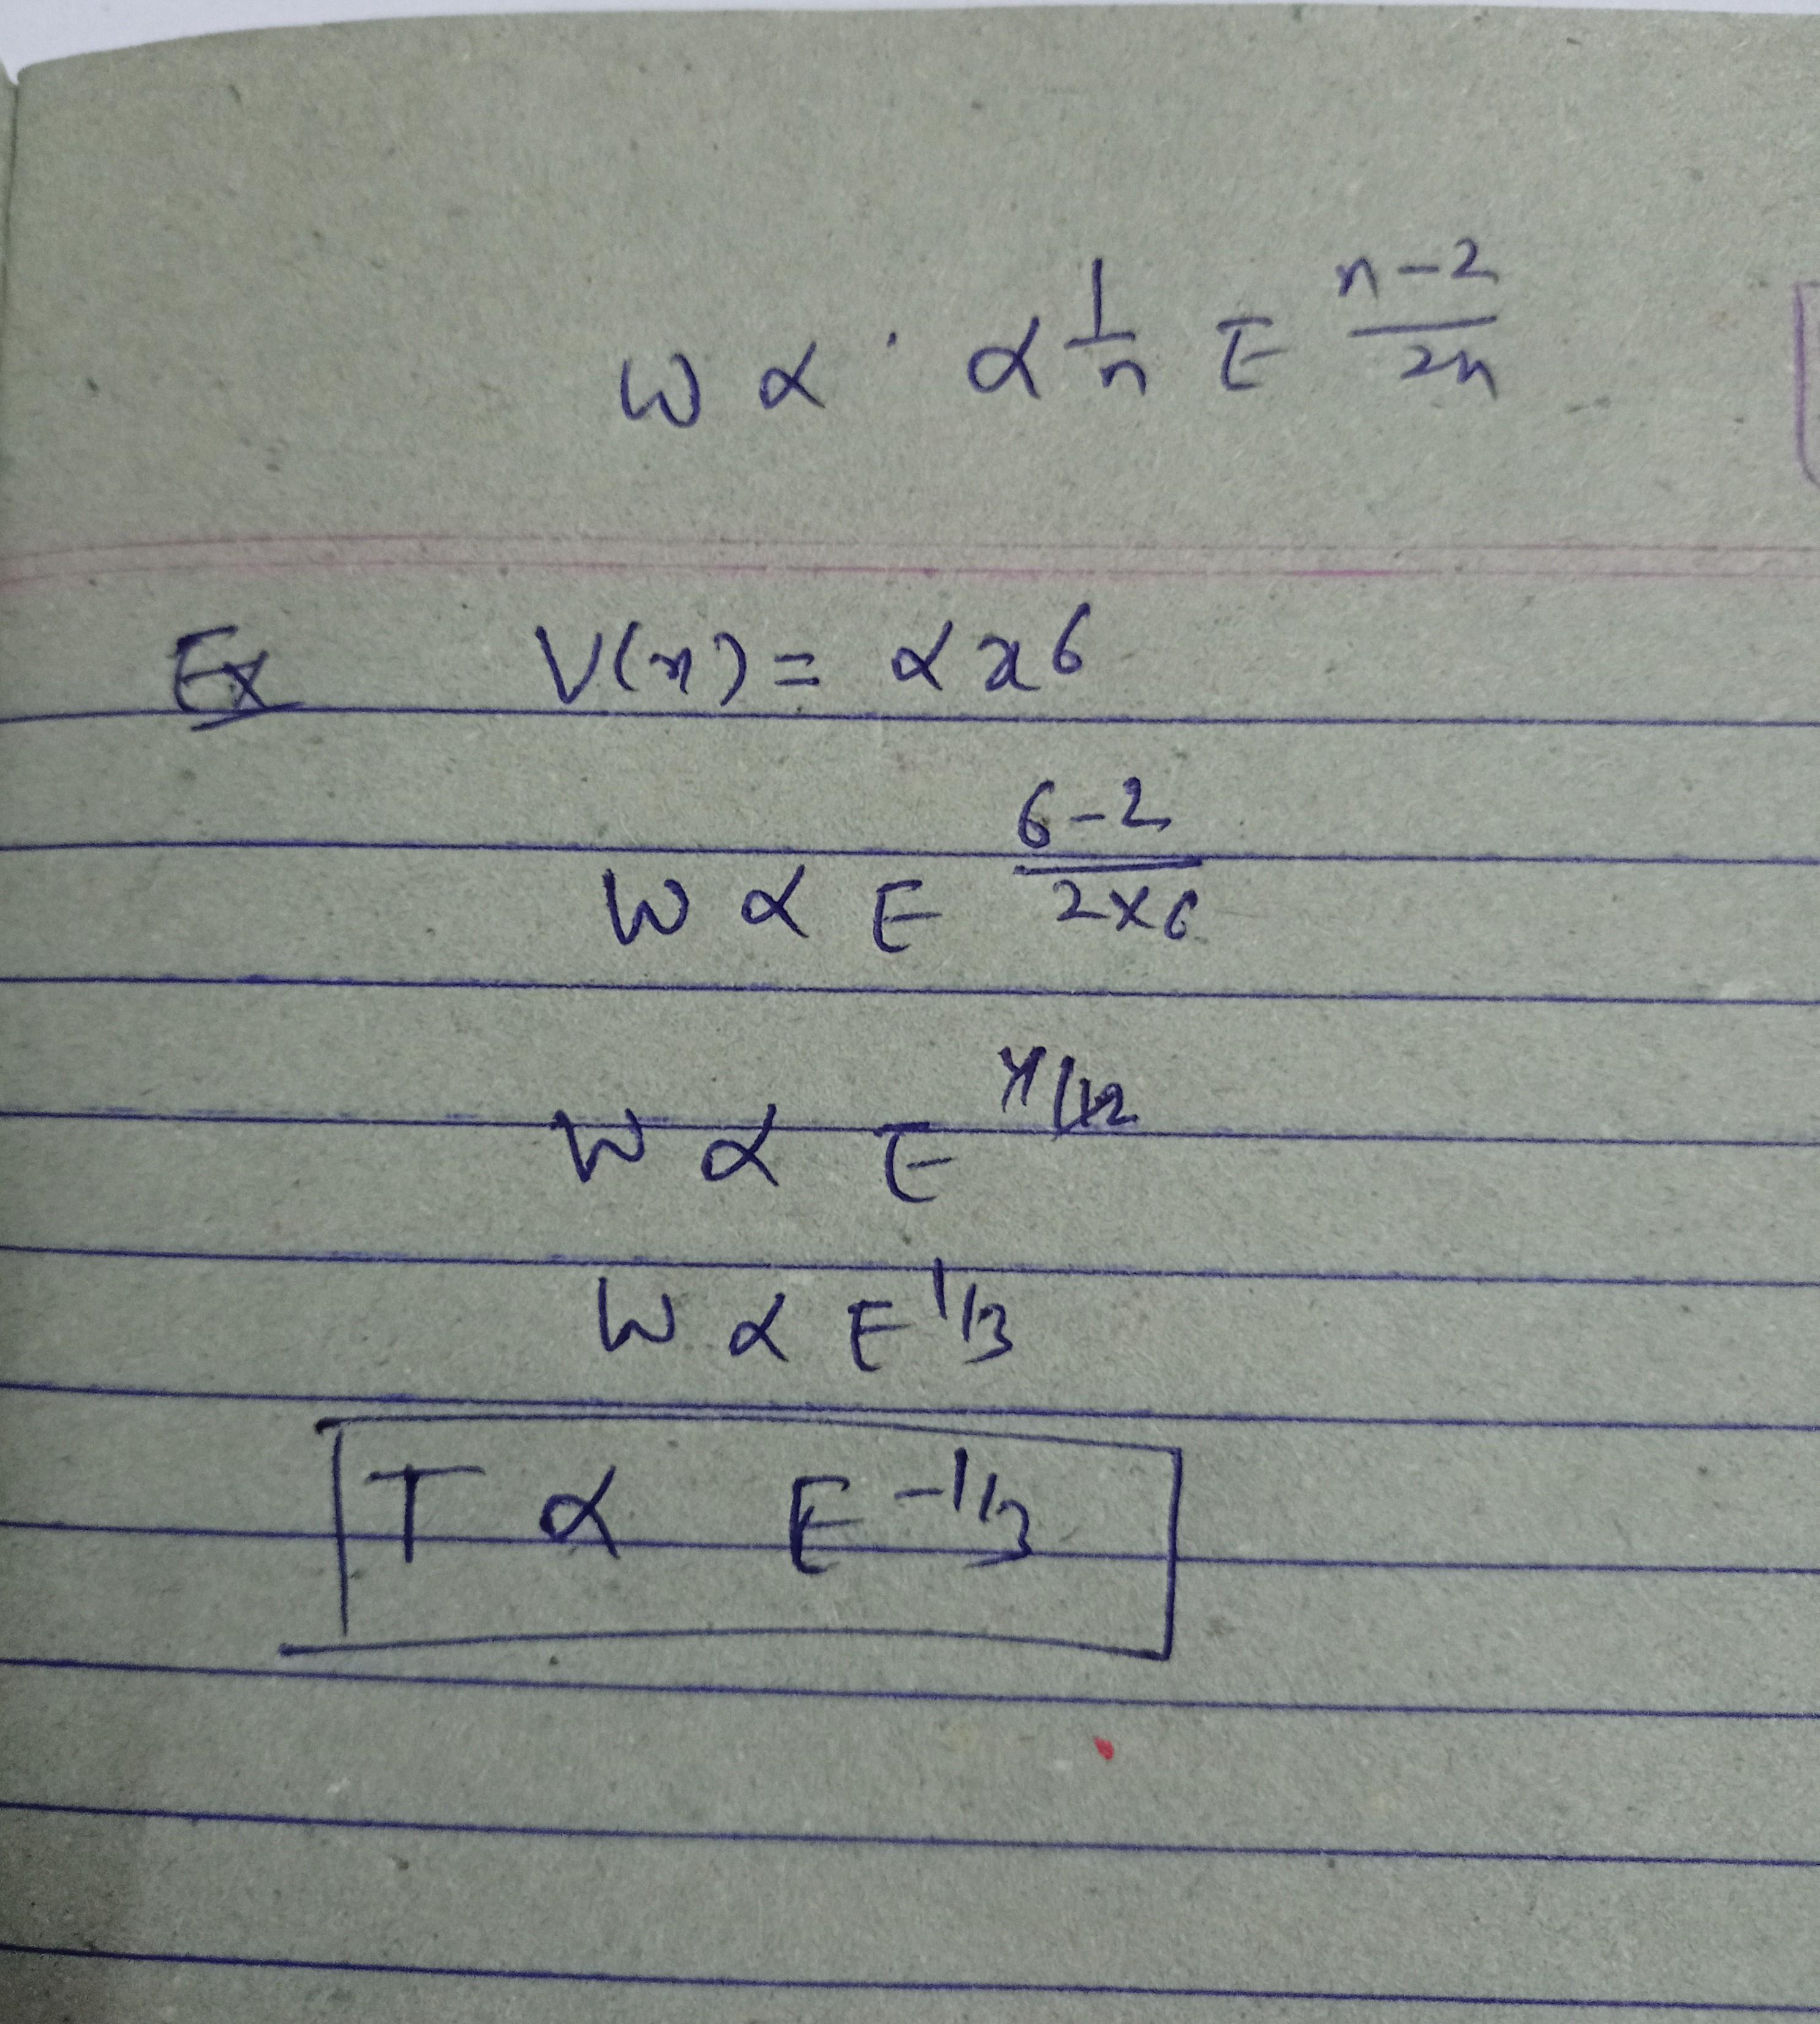 W ∝ · α^{1/n} E^{(n-2)/2n}
Ex V(x) = αx6
W ∝ E^{(6-2)/(2×6)}
W ∝ E^{4/12}
W ∝ E^{1/3}
T ∝ E^{-1/3}